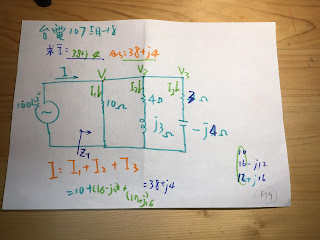 台電107年5月-18
求I=38+j4 Ans:38+j4
I V1 V2 V3
I1↓ I2↓ I3↓
100∠0° 10Ω 4Ω 3Ω
j3Ω -j4Ω
I=I1+I2+I3
=10+(16-j12)+(12+j16)=38+j4
10
16-j12
12+j16
(P19)